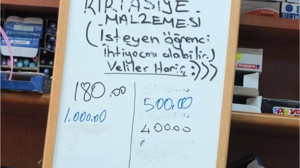 KIRTASİYE
MALZEMESİ
(İsteyen öğrenci
ihtiyacını alabilir.)
Veliler Hariç :)))
180.00
500,00
1.000.00
400.00